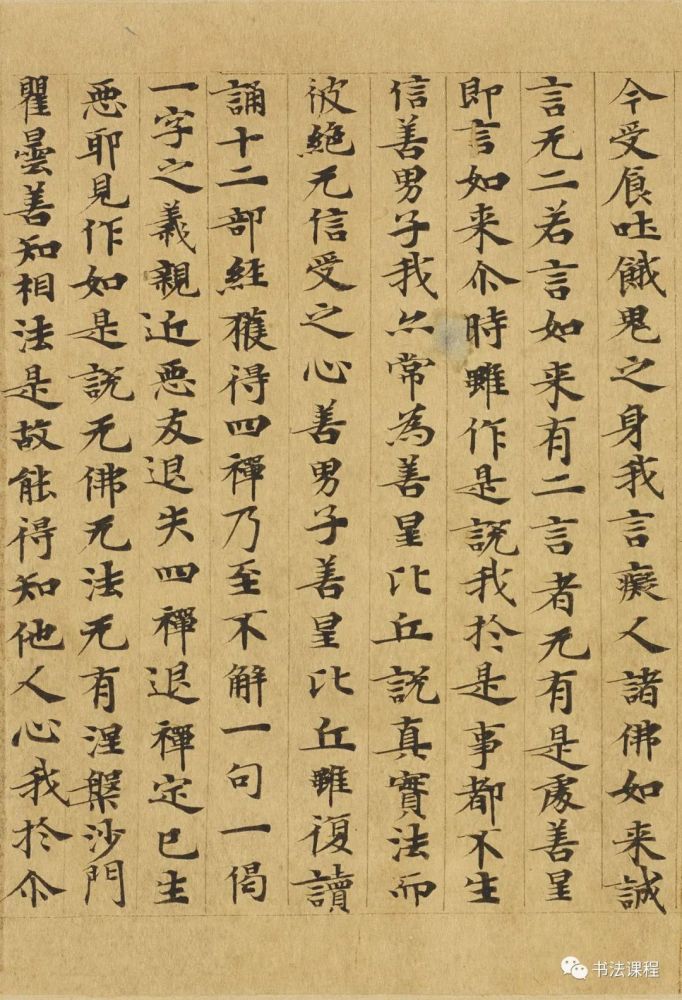 今受食吐餓鬼之身我言癡人諸佛如来誠
言无二若言如来有二言者无有是處善星
即言如来尒時雖作是説我扵是事都不生
信善男子我亦常為善星比丘說真實法而
彼絶无信受之心善男子善星比丘雖復讀
誦十二部經獲得四禪乃至不解一句一偈
一字之義親近惡友退失四禪退禪定已生
惡耶見作如是説无佛无法无有涅槃沙門
瞿曇善知相法是故能得知他人心我扵尒
书法课程